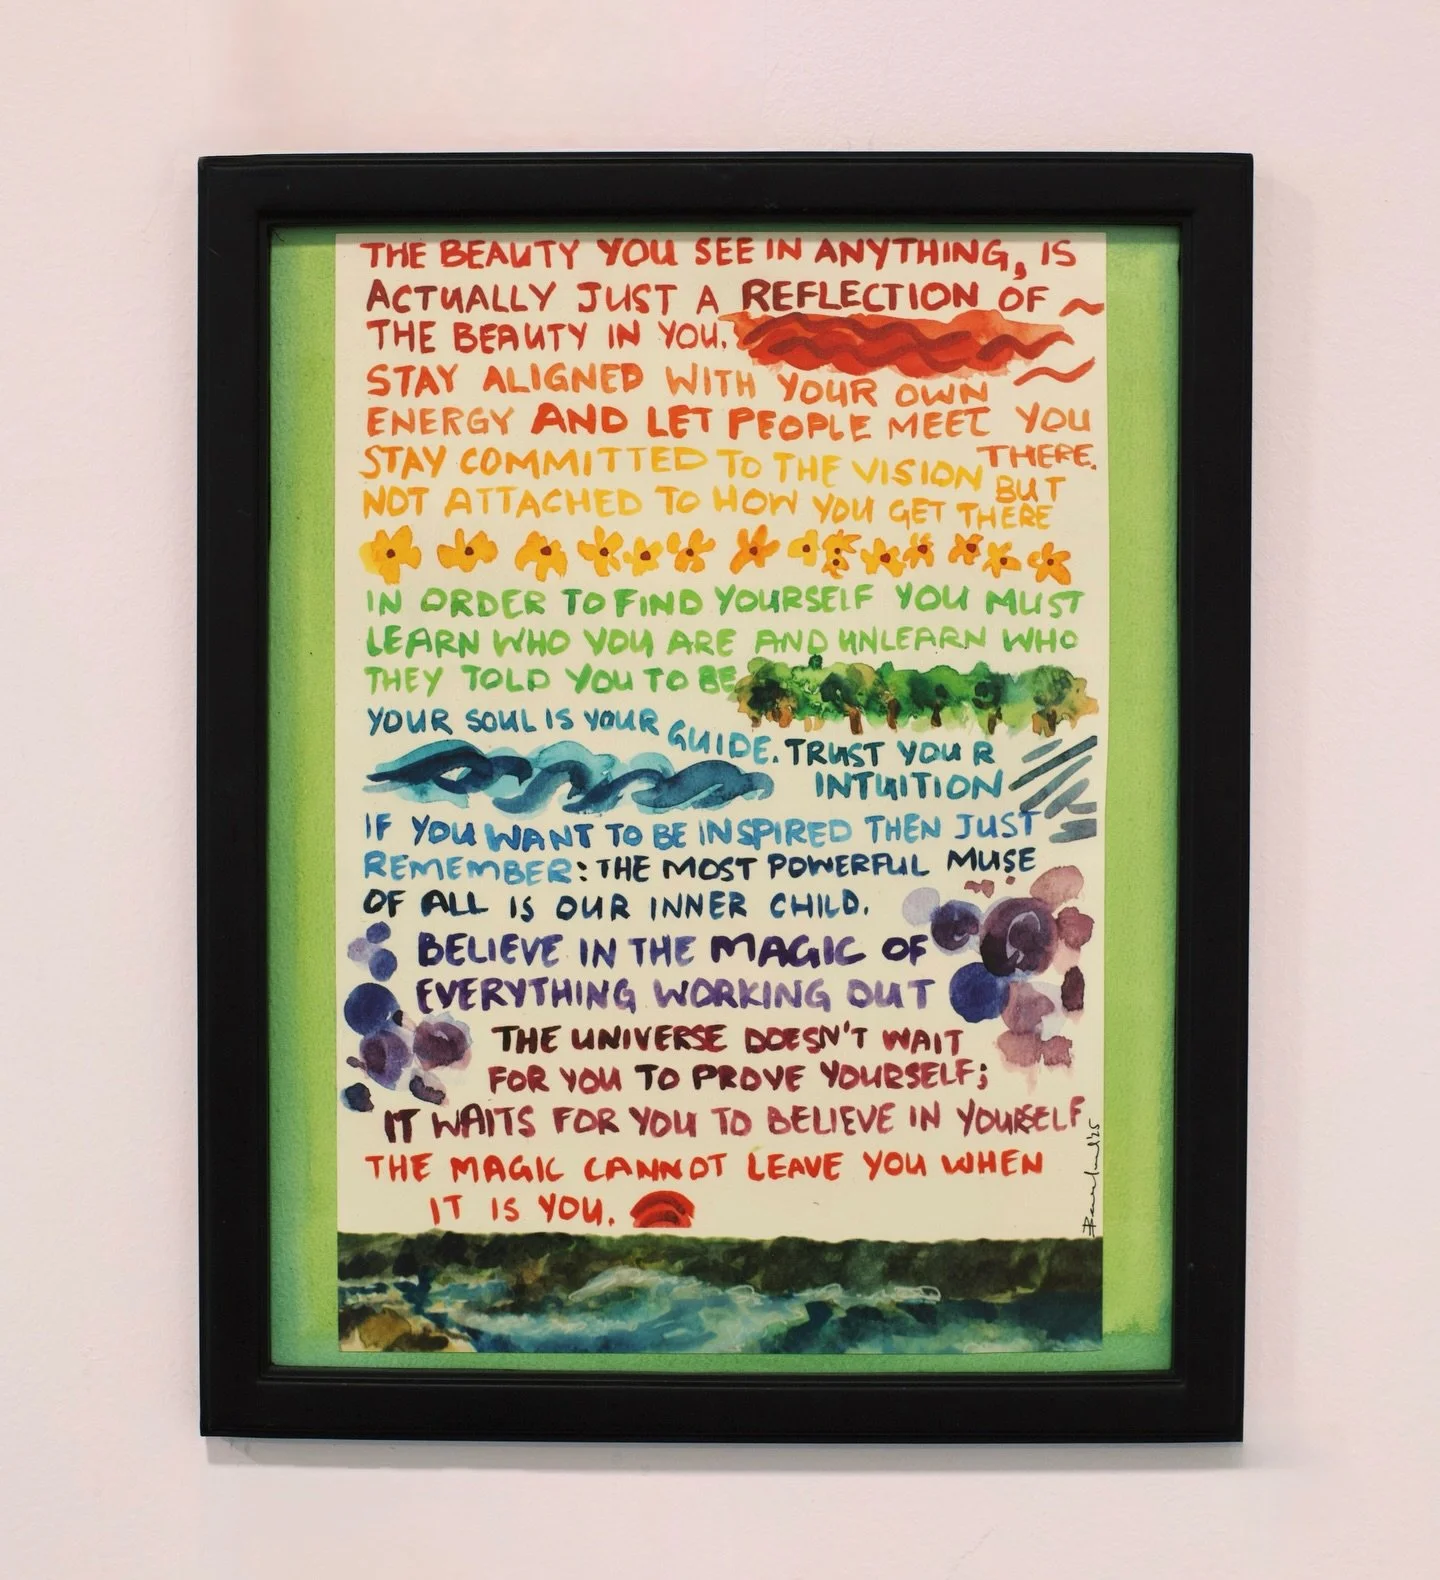 THE BEAUTY YOU SEE IN ANYTHING, IS
ACTUALLY JUST A REFLECTION OF
THE BEAUTY IN YOU.
STAY ALIGNED WITH YOUR OWN
ENERGY AND LET PEOPLE MEET YOU
THERE.
STAY COMMITTED TO THE VISION BUT
NOT ATTACHED TO HOW YOU GET THERE
IN ORDER TO FIND YOURSELF YOU MUST
LEARN WHO YOU ARE AND UNLEARN WHO
THEY TOLD YOU TO BE
YOUR SOUL IS YOUR GUIDE. TRUST YOUR
INTUITION
IF YOU WANT TO BE INSPIRED THEN JUST
REMEMBER: THE MOST POWERFUL MUSE
OF ALL IS OUR INNER CHILD.
BELIEVE IN THE MAGIC OF
EVERYTHING WORKING OUT
THE UNIVERSE DOESN'T WAIT
FOR YOU TO PROVE YOURSELF;
IT WAITS FOR YOU TO BELIEVE IN YOURSELF
THE MAGIC CANNOT LEAVE YOU WHEN
IT IS YOU.